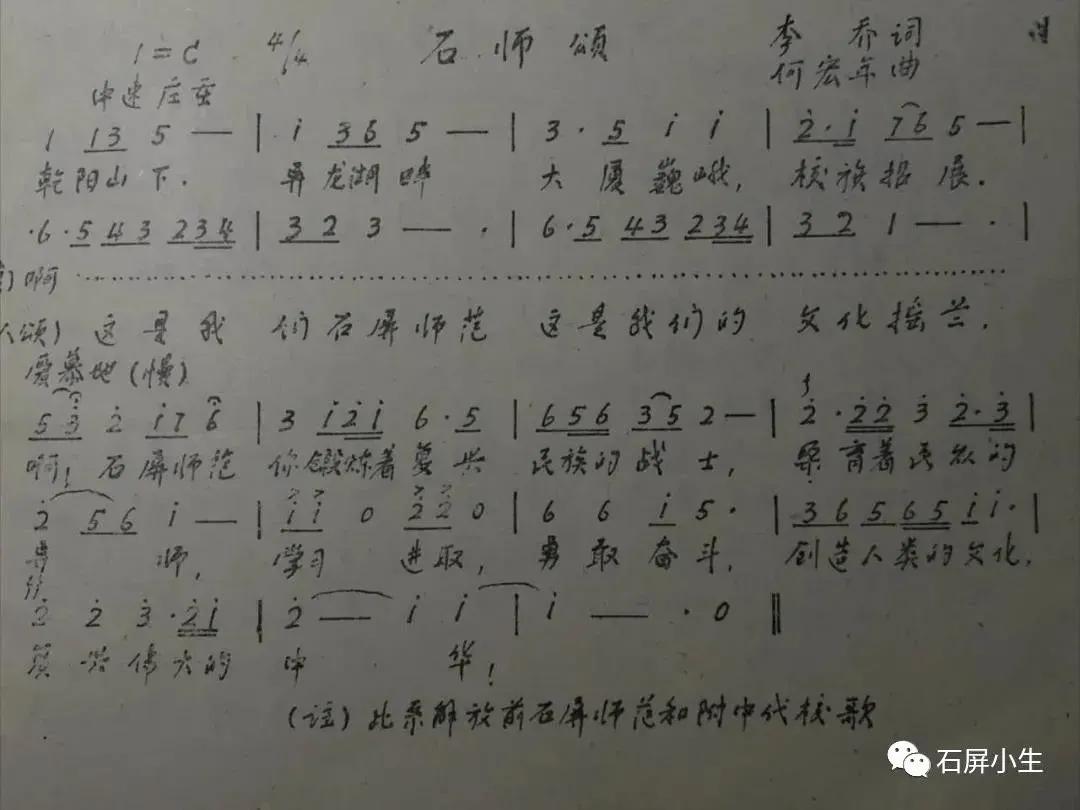 石师颂
1=C 4/4 李乔词
中速庄重 何宏年曲
1 13 5 — | i 36 5 — | 3 · 5 i i | 2 · i 76 5 — |
乾阳山下. 异龙湖畔 大厦巍峨, 校旗招展.
·6·5 43 234 | 32 3 — · | 6·5 43 234 | 32 1 — · |
啊
颂) 这是我们石屏师范 这是我们的文化摇兰.
爱慕地(慢)
53 2 i7 6 | 3 i2i 6·5 | 656 35 2 — | 2·22 3 2·3 |
啊! 石屏师范 你锻炼着复兴民族的战士, 育着民众的
2 56 i — | ii 0 22 0 | 6 6 i 5· | 36 565 i i· |
导师, 学习 进取, 勇敢奋斗, 创造人类的文化,
2 2 3·2i | 2 — i i | i — · 0 ||
兴伟大的中华!
(注) 此系解放前石屏师范和附中代校歌
石屏小生